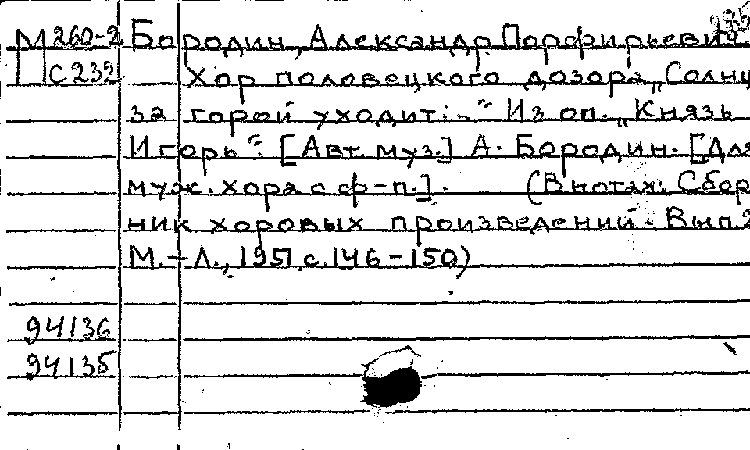 М260-2 Бородин, Александр Порфирьевич.
С232 Хор половецкого дозора „Солнц
за горой уходит..." Из оп. „Князь
Игорь". [Авт. муз.] А. Бородин. [Для
муж. хора с ф-п.]. (В нотах: Сбор
ник хоровых произведений. Вып 2
М.-Л., 1951, с. 146-150)
94136
94135